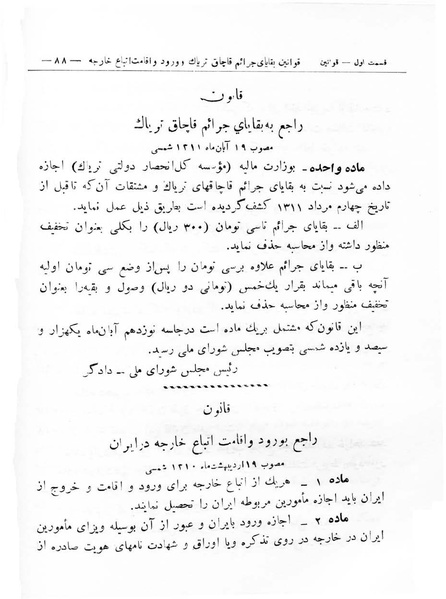 قسمت اول — قوانین قوانین بقایای جرائم قاچاق تریاك و ورود و اقامت اتباع خارجه — ۸۸ —
قانون
راجع به بقایای جرائم قاچاق تریاك
مصوب ۱۹ آبان ماه ۱۳۱۱ شمسی
ماده واحده ـ بوزارت مالیه (مؤسسه کل انحصار دولتی تریاك) اجازه
داده می‌شود نسبت به بقایای جرائم قاچاقهای تریاك و مشتقات آن که تا قبل از
تاریخ چهارم مرداد ۱۳۱۱ کشف گردیده است بطریق ذیل عمل نماید.
الف ـ بقایای جرائم تاسی تومان (۳۰۰ ریال) را بکلی بعنوان تخفیف
منظور داشته و از محاسبه حذف نماید.
ب ـ بقایای جرائم علاوه برسی تومان را پس از وضع سی تومان اولیه
آنچه باقی میماند بقرار یك خمس (تومانی دو ریال) وصول و بقیه را بعنوان
تخفیف منظور و از محاسبه حذف نماید.
این قانون که مشتمل بریك ماده است در جلسه نوزدهم آبان ماه یکهزار و
سیصد و یازده شمسی بتصویب مجلس شورای ملی رسید.
رئیس مجلس شورای ملی ـ دادگر
قانون
راجع بورود و اقامت اتباع خارجه در ایران
مصوب ۱۹ اردیبهشت ماه ۱۳۱۰ شمسی
ماده ۱ ـ هریك از اتباع خارجه برای ورود و اقامت و خروج از
ایران باید اجازه مأمورین مربوطه ایران را تحصیل نمایند.
ماده ۲ ـ اجازه ورود بایران و عبور از آن بوسیله ویزای مأمورین
ایران در خارجه در روی تذکره ویا اوراق و شهادت نامهای هویت صادره از